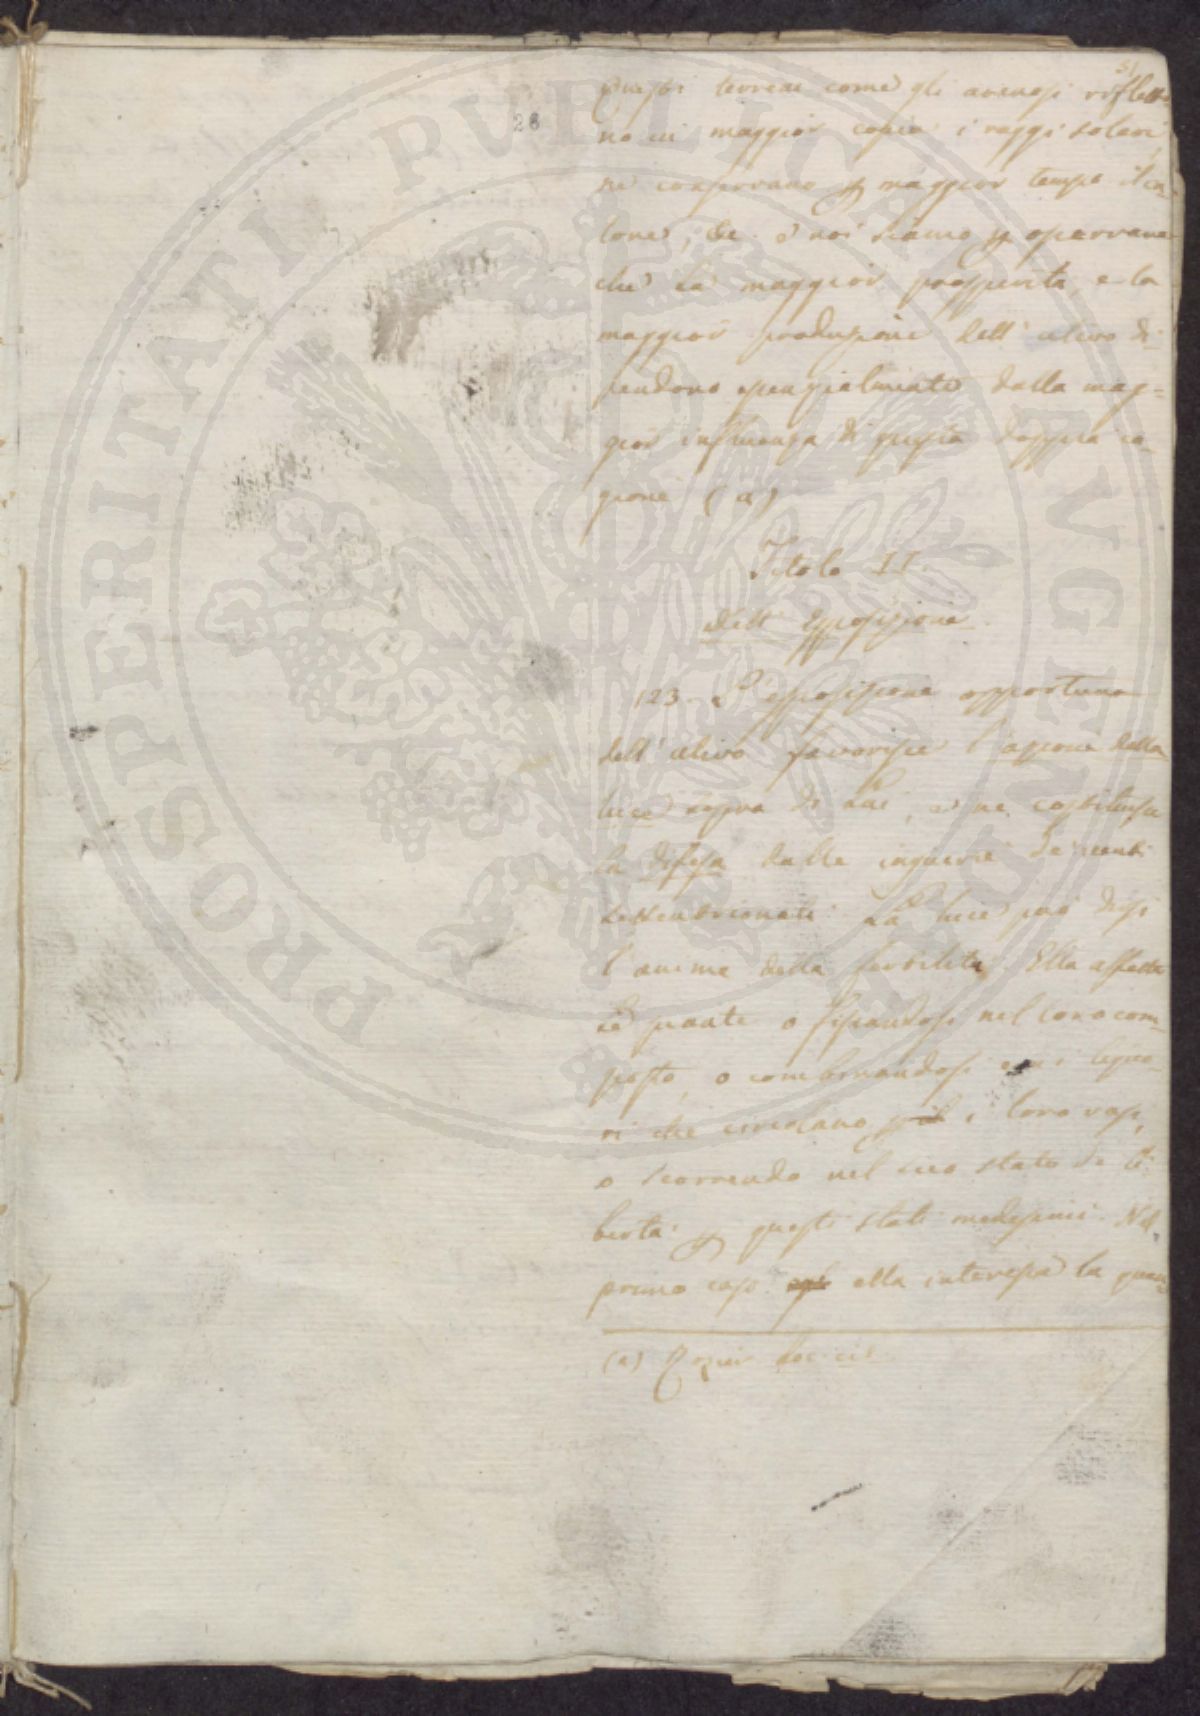 51
26
Questi terreni come gli arenosi rifletto
no in maggior copia i raggi solari,
ne conservano p maggior tempo il ca-
lore, e noi siamo p osservare
che la maggior prosperità, e la
maggior produzione dell' ulivo di-
pendono spezialmente dalla mag-
gior influenza di questa doppia ca-
gione (a)
Titolo II.
Dell' Esposizione.
123. L' esposizione opportuna
dell' ulivo favorisce l'azione della
luce sopra di lui, e ne costituisce
la difesa dalle ingiurie de' venti
settentrionali. La luce può dirsi
l'anima della fertilità. Ella affetta
le piante o fissandosi nel loro com-
posto, o combinandosi con i liquo-
ri che circolano p i loro vasi,
o scorrendo nel suo stato di li-
bertà p questi stati medesimi. Nel
primo caso ella interessa la quan-
(a) Rozier loc. cit.
PROSPERITATI PVBLICAE AVGENDAE